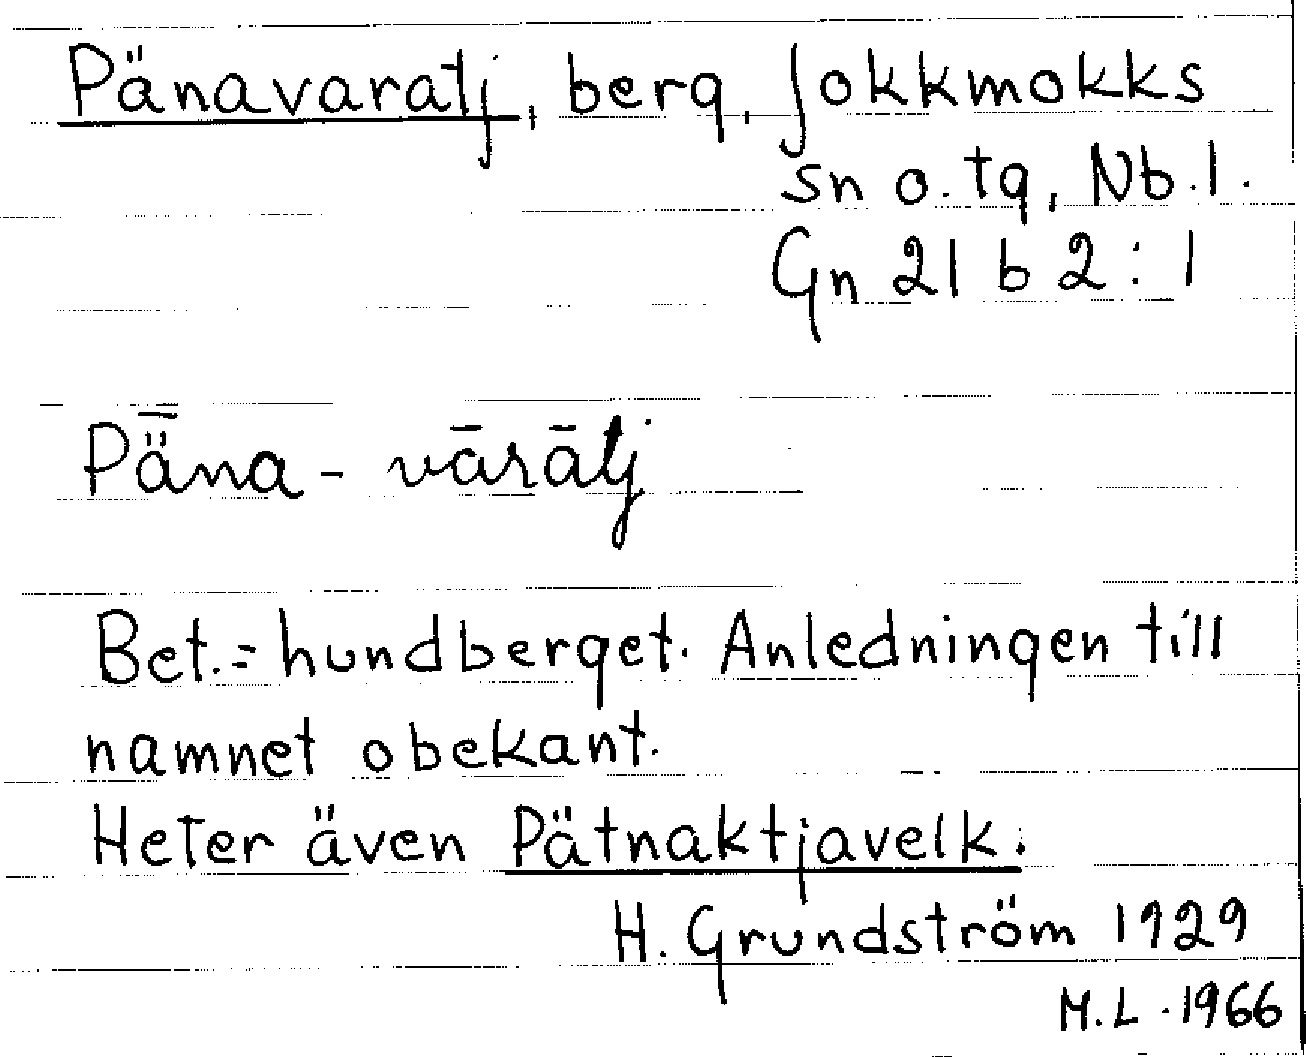 Pänavaratj, berg, Jokkmokks
sn o. tg, Nb. l.
Gn 21 b 2 : 1
Pǟna - vārātj
Bet. = hundberget. Anledningen till
namnet obekant.
Heter även Pätnaktjavelk.
H. Grundström 1929
M.L. 1966